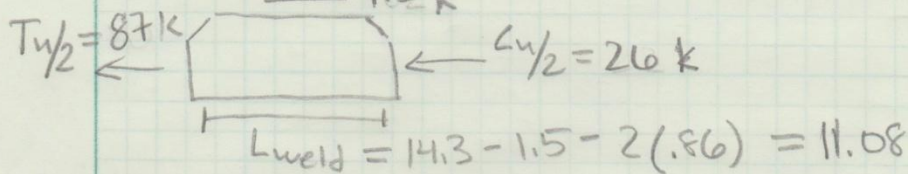 Tu/2 = 87k
Cu/2 = 26 k
Lweld = 14.3 - 1.5 - 2(.86) = 11.08